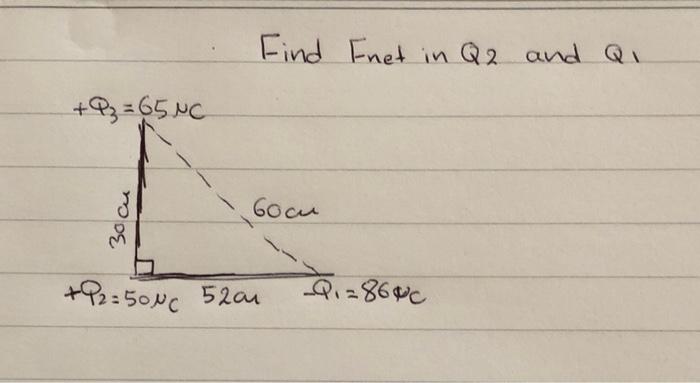 Find Fnet in Q2 and Q1
+Q3 = 65 μC
30cm
60cm
+Q2 = 50 μC 52cm -Q1 = 86 μC